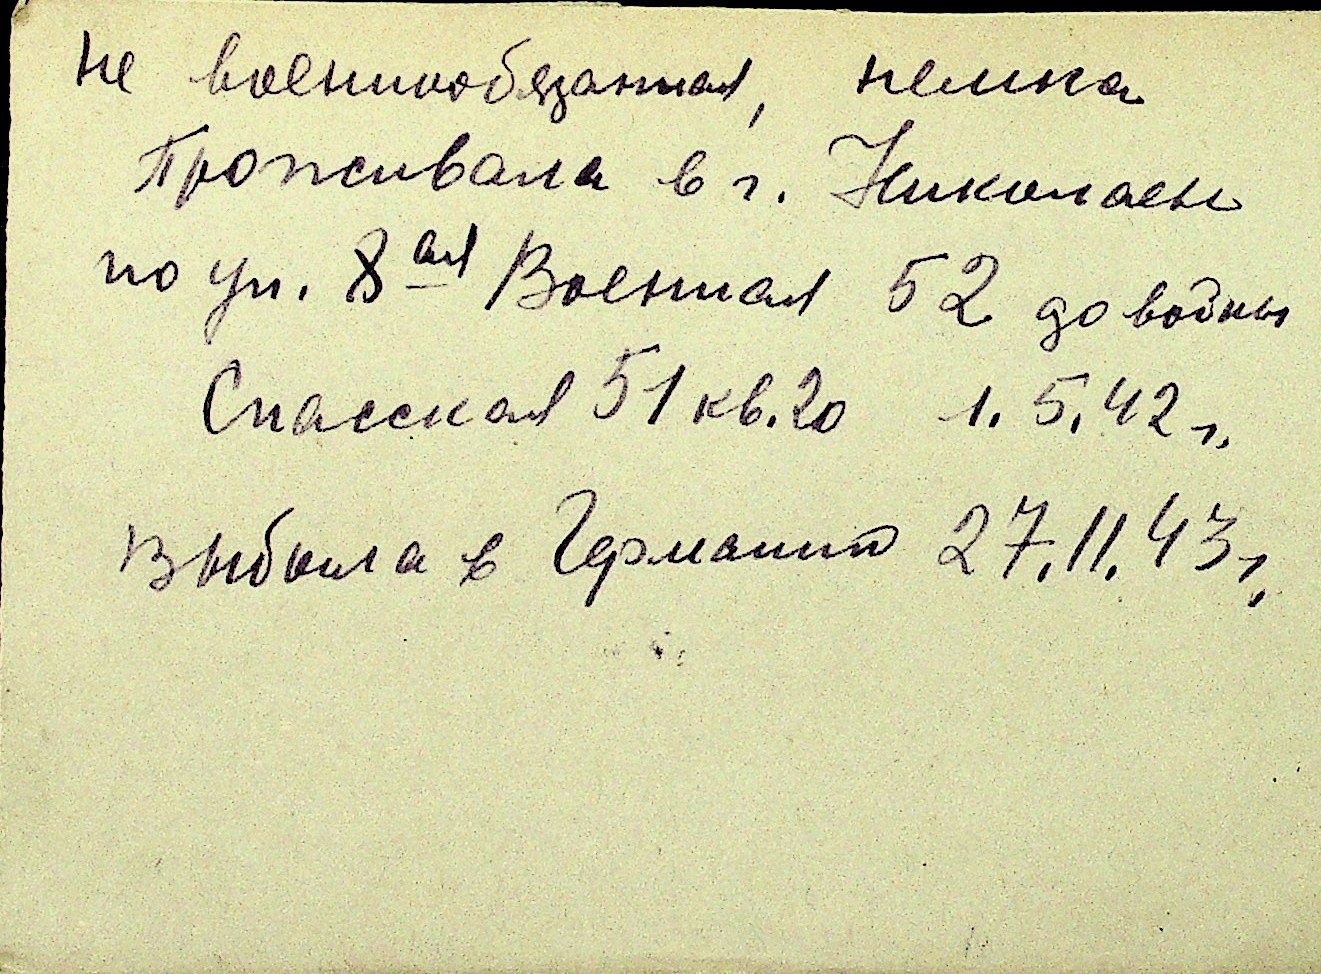 не военнообязанная, немка
Проживала в г. Николаеве
по ул. 8 ая Военная 52 до войны
Спасская 51 кв. 20 1. 5. 42 г.
Выбыла в Германию 27. 11. 43 г.